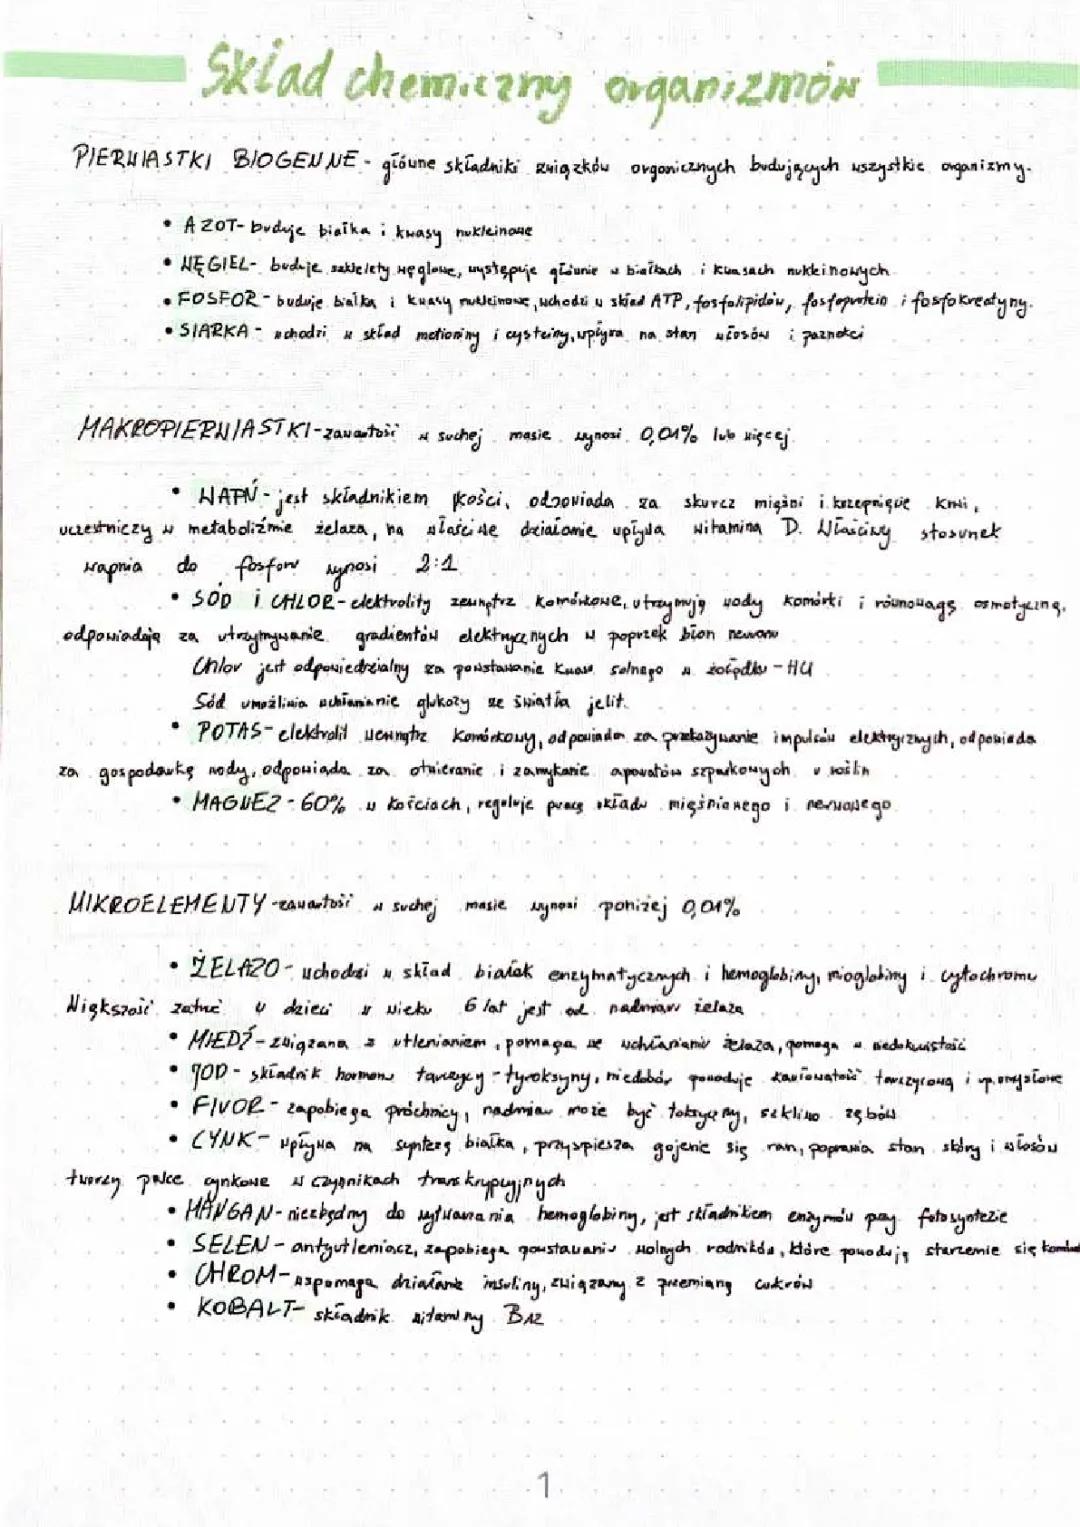 Skład chemiczny organizmów
PIERWIASTKI BIOGENNE - główne składniki związków organicznych budujących wszystkie organizmy.
• AZOT- buduje białka i kwasy nukleinowe
• WĘGIEL- buduje szkielety węglowe, występuje głównie w białkach i kwasach nukleinowych
• FOSFOR - buduje białka i kwasy nukleinowe, wchodzi w skład ATP, fosfolipidów, fosfoprotein i fosfokreatyny.
• SIARKA - wchodzi w skład metioniny i cysteiny, wpływa na stan włosów i paznokci
MAKROPIERWIASTKI - zawartość w suchej masie wynosi 0,01% lub więcej
• WAPŃ - jest składnikiem kości, odpowiada za skurcz mięśni i krzepnięcie krwi,
uczestniczy w metabolizmie żelaza, na właściwe działanie wpływa witamina D. Właściwy stosunek
wapnia do fosforu wynosi 2:1
• SÓD i CHLOR - elektrolity zewnątrz komórkowe, utrzymują wody komórki i równowagę osmotyczną,
odpowiadają za utrzymywanie gradientów elektrycznych w poprzek błon neuronu
Chlor jest odpowiedzialny za powstawanie kwasu solnego w żołądku - HCl
Sód umożliwia wchłanianie glukozy ze światła jelit.
• POTAS - elektrolit wewnątrz komórkowy, odpowiada za przekazywanie impulsów elektrycznych, odpowiada
za gospodarkę wody, odpowiada za otwieranie i zamykanie aparatów szparkowych u roślin
• MAGNEZ - 60% w kościach, reguluje pracę układu mięśniowego i nerwowego
MIKROELEMENTY - zawartość w suchej masie wynosi poniżej 0,01%
• ŻELAZO - wchodzi w skład białek enzymatycznych i hemoglobiny, mioglobiny i cytochromu
Większość zatruć u dzieci w wieku 6 lat jest od nadmiaru żelaza
• MIEDŹ - związana z utlenianiem, pomaga we wchłanianiu żelaza, pomaga w niedokrwistość
• JOD - składnik hormonu tarczycy - tyroksyny, niedobór powoduje tarczycową i up. umysłowe
• FLUOR - zapobiega próchnicy, nadmiar może być toksyczny, szkliwo zębów
• CYNK - wpływa na syntezę białka, przyspiesza gojenie się ran, poprawia stan skóry i włosów
tworzy palce cynkowe w czynnikach transkrypcyjnych
• MANGAN - niezbędny do wytwarzania hemoglobiny, jest składnikiem enzymów przy fotosyntezie
• SELEN - antyutleniacz, zapobiega powstawaniu wolnych rodników, które powodują starzenie się
• CHROM - wspomaga działanie insuliny, związany z przemianą cukrów
• KOBALT - składnik witaminy B12
1